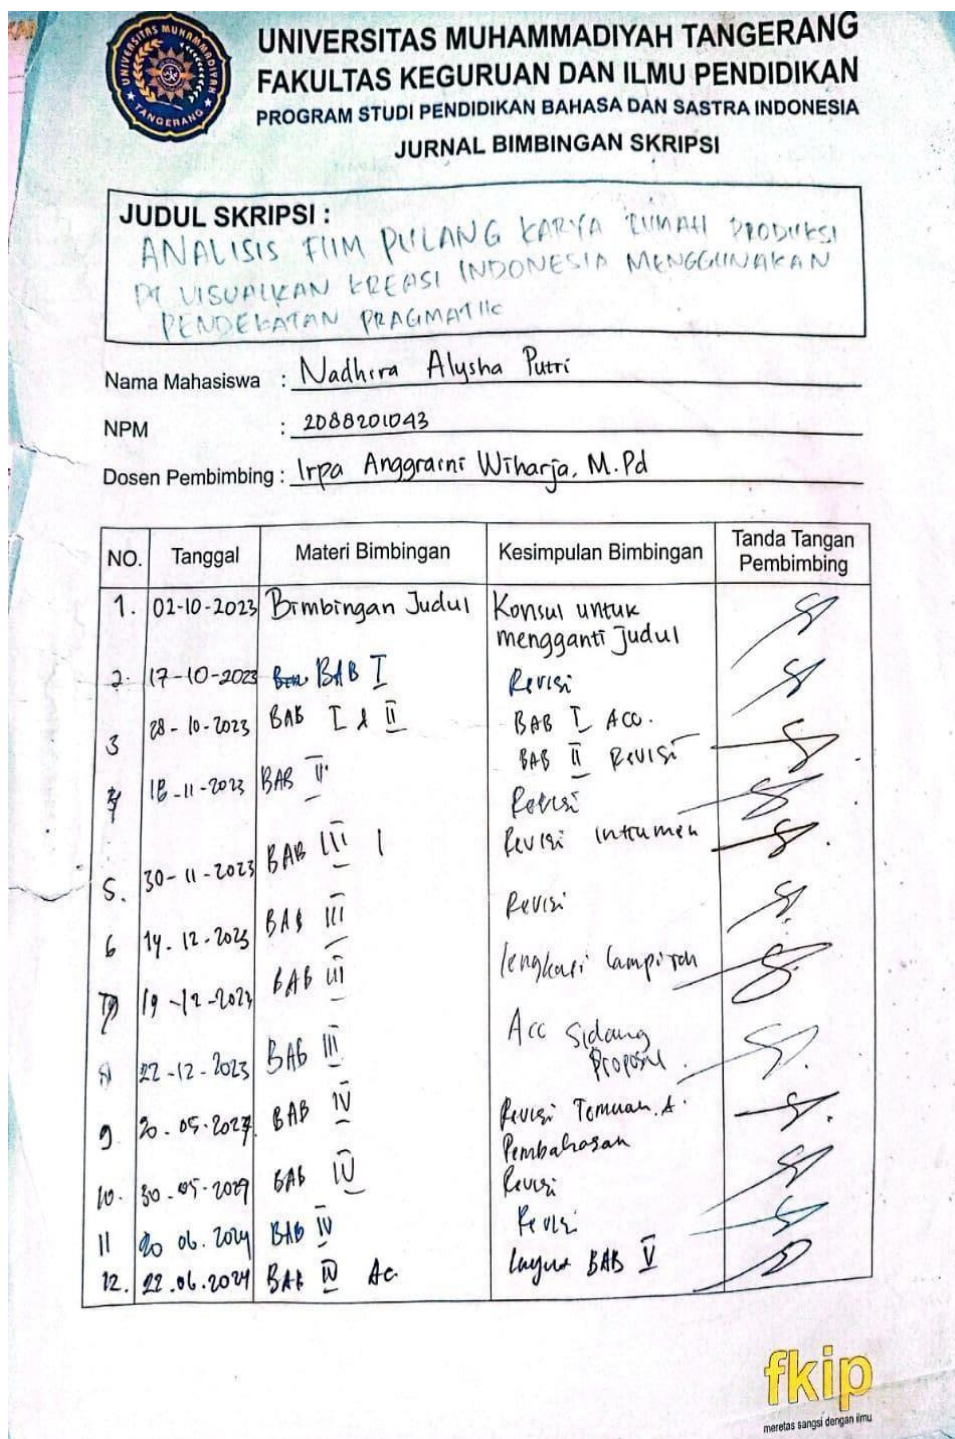 UNIVERSITAS MUHAMMADIYAH TANGERANG
UNIVERSITAS MUHAMMADIYAH TANGERANG
FAKULTAS KEGURUAN DAN ILMU PENDIDIKAN
PROGRAM STUDI PENDIDIKAN BAHASA DAN SASTRA INDONESIA
JURNAL BIMBINGAN SKRIPSI
JUDUL SKRIPSI :
ANALISIS FIIM PULANG KARYA RUMAH PRODUKSI
PT VISUALKAN KREASI INDONESIA MENGGUNAKAN
PENDEKATAN PRAGMATIK
Nama Mahasiswa : Nadhira Alysha Putri
NPM : 2088201043
Dosen Pembimbing : Irpa Anggraini Wiharja, M.Pd
NO. Tanggal Materi Bimbingan Kesimpulan Bimbingan Tanda Tangan Pembimbing
1. 02-10-2023 Bimbingan Judul Konsul untuk
mengganti Judul
2. 17-10-2023 BAB I Revisi
3 28-10-2023 BAB I & II BAB I ACC.
BAB II Revisi
18-11-2023 BAB II Revisi
5. 30-11-2023 BAB III Revisi Intrumen
6 14.12-2023 BAB III Revisi
19-12-2023 BAB III lengkapi lampiran
22-12-2023 BAB III Acc Sidang
Proposal.
9. 20.05.2024 BAB IV Revisi Temuan &
Pembahasan
10. 30-05-2024 BAB IV Revisi
11 20 06.2024 BAB IV Revisi
12. 22.06.2024 BAB IV Ac. BAB V
fkip
meretas sangsi dengan ilmu